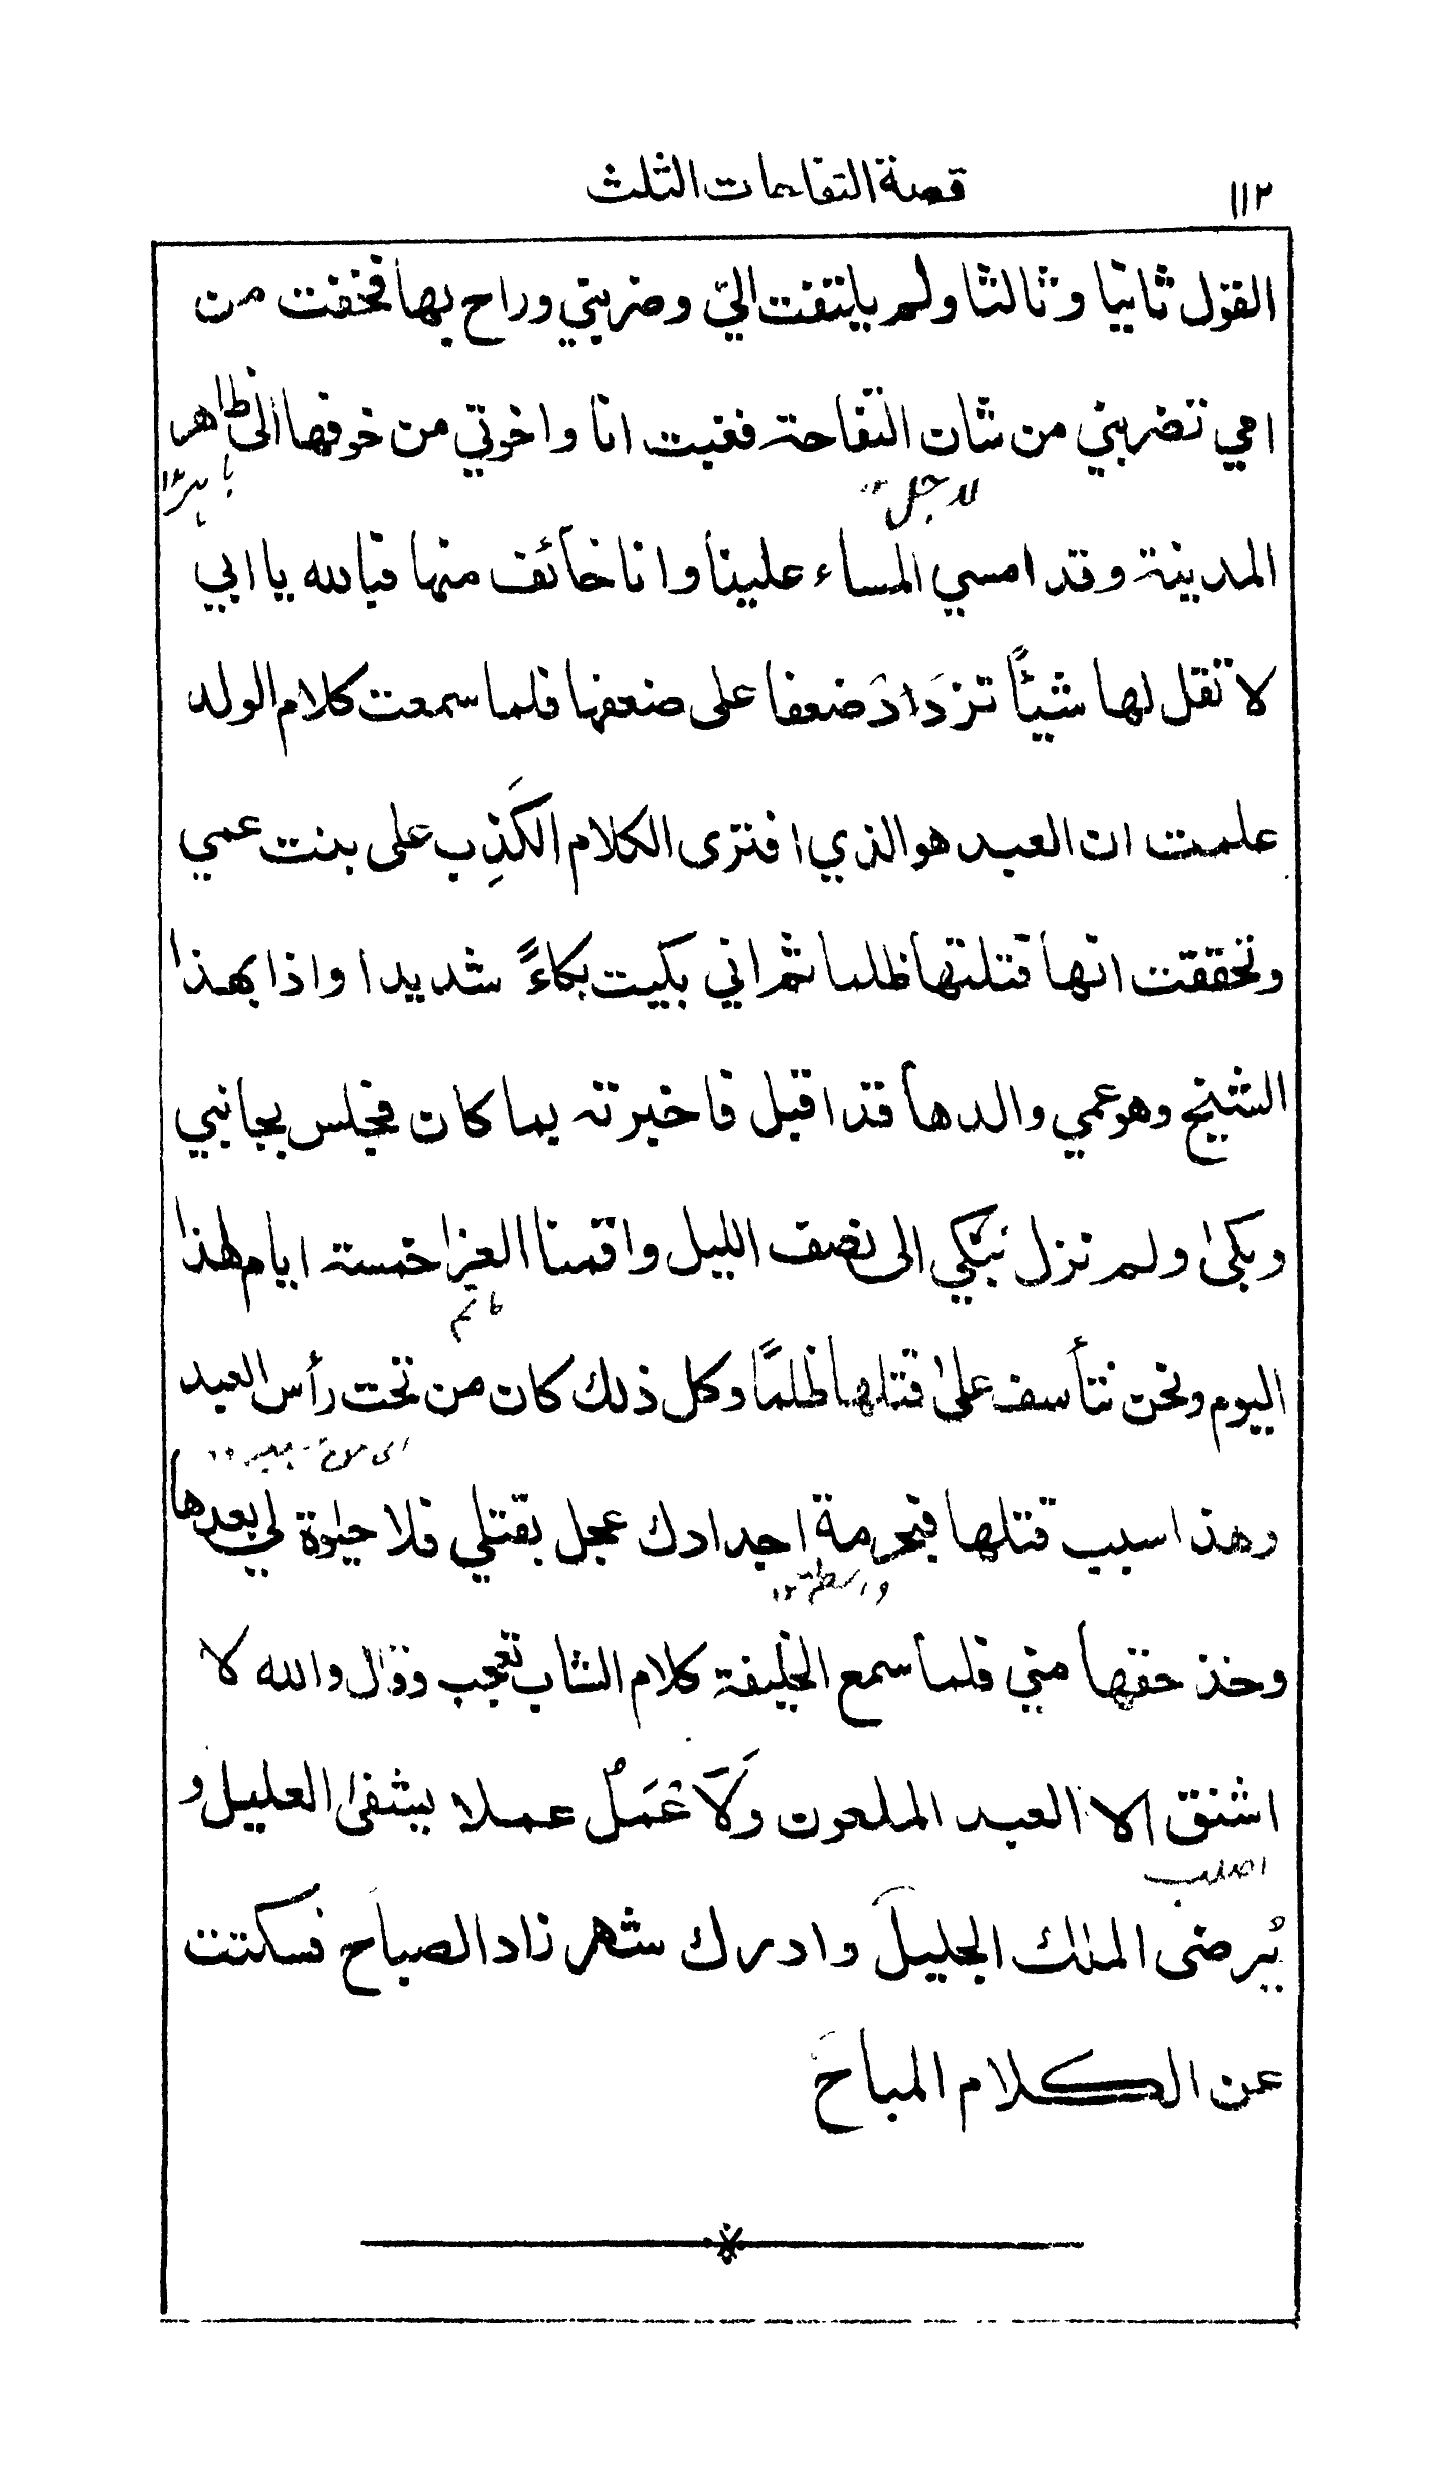 ١١٢ قصة التفاحات الثلث
القول ثانيا وثالثا ولم يلتفت اليّ وضربني وراح بها فخفت من
امي تضربني من شان التفاحة فغبت انا واخوتي من خوفها الى ظاهر
لاجل ١٢
المدينة وقد امسي المساء علينا وانا خائف منها فبالله يا ابي
لا تقل لها شيئًا تزدَادَ ضعفا على ضعفها فلما سمعت كلام الولد
علمت ان العبد هو الذي افترى الكلام الكَذِب على بنت عمي
وتحققت انها قتلتها ظلما ثم اني بكيت بكاءً شديدا واذا بهذا
الشيخ وهو عمي والدها قد اقبل فاخبرته بما كان فجلس بجانبي
وبكىٰ ولم نزل نبكي الى نصف الليل واقمنا العزا خمسة ايام لهذا
ماتم
اليوم ونحن نتأسف علىٰ قتلها ظلمًا وكل ذلك كان من تحت رأس العبد
وهذا سبب قتلها فبحرمة اجدادك عجل بقتلي فلا حيٰوة لي بعدها
واسطة ١٢
وخذ حقها مني فلما سمع الخليفة كلام الشاب تعجب وقال والله لا
اشنق الا العبد الملعون ولَاَعْمَلُ عملا يشفىٰ العليل و
اصلب
يُرضى الملك الجليلَ وادرك شهرزاد الصباح فسكتت
عن الكلام المباحَ